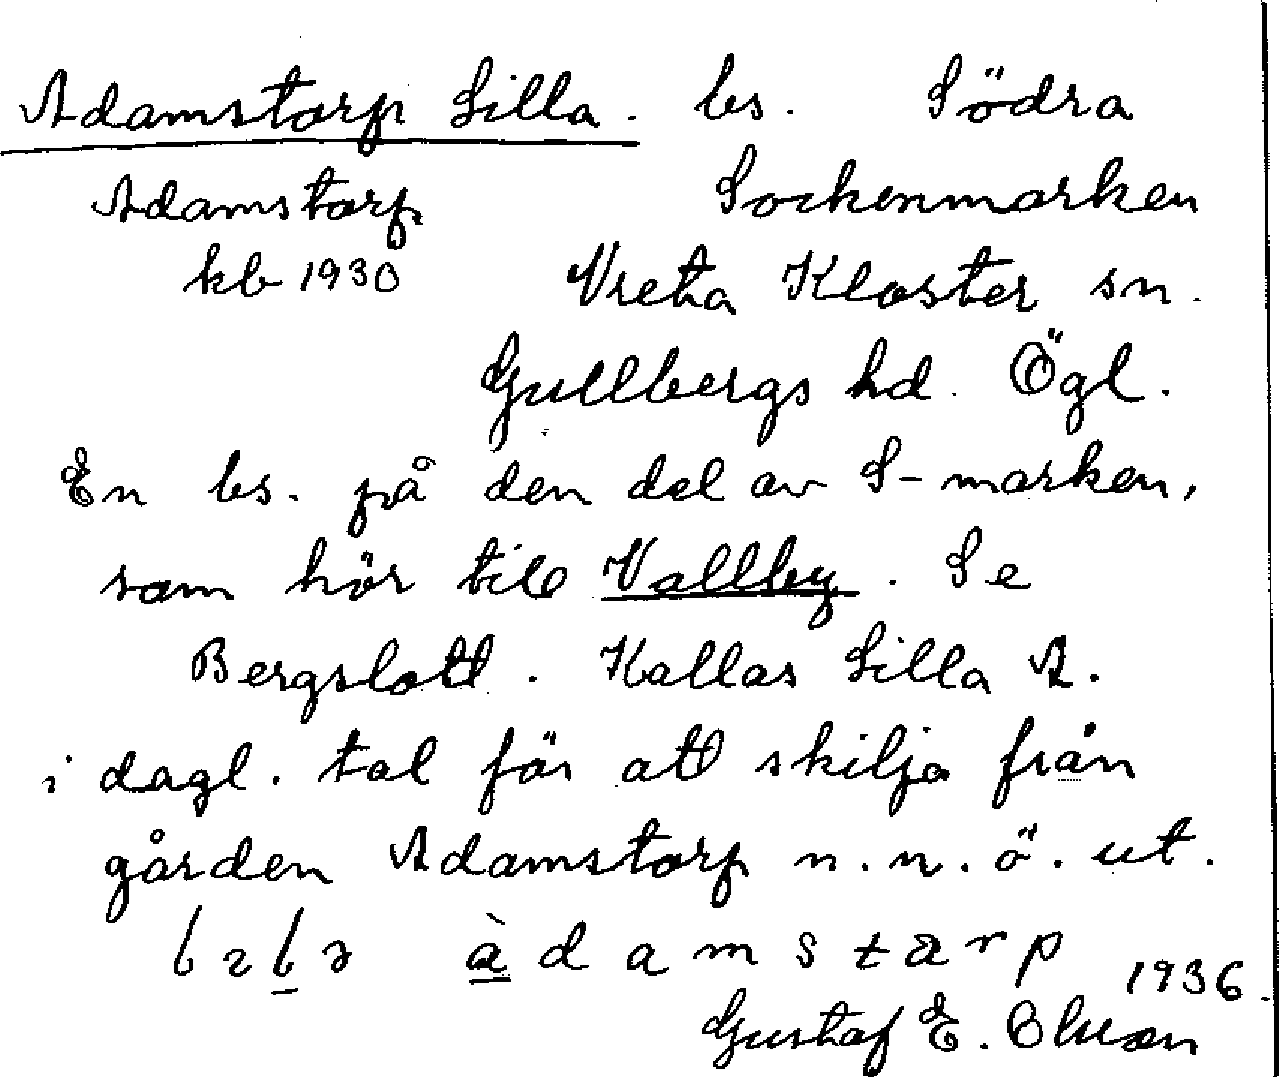 Adamstorp Lilla. ls. Södra
Adamstorp Sockenmarken
kb 1930 Vreta Kloster sn.
Gullbergs hd. Ögl.
En ls. på den del av S-marken,
som hör till Vallby. Se
Bergslott. Kallas Lilla A.
i dagl. tal för att skilja från
gården Adamstorp n.n.ö. ut.
àdamstarp 1936
Gustaf E.